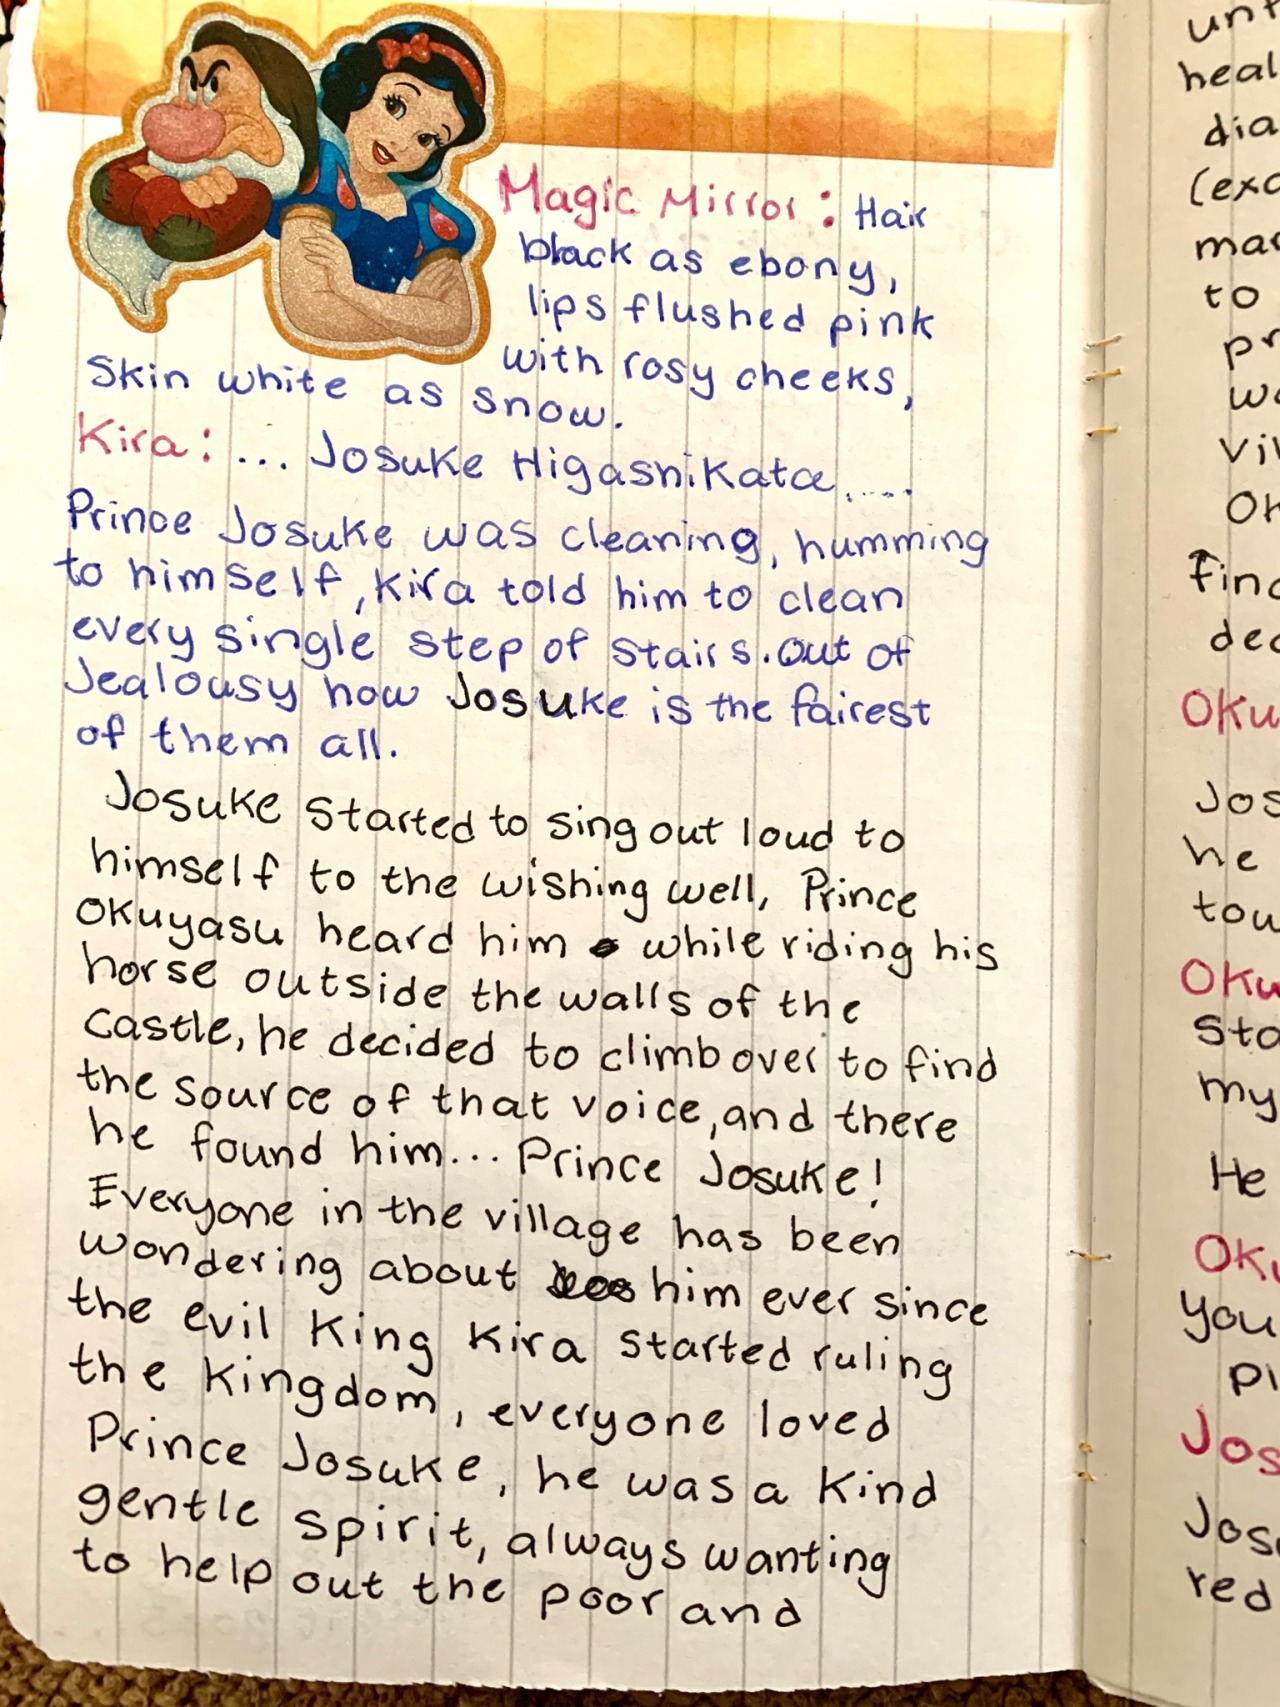 Magic Mirror: Hair
black as ebony,
lips flushed pink
with rosy cheeks,
Skin white as snow.
Kira: ... Josuke Higashikata.....
Prince Josuke was cleaning, humming
to himself, Kira told him to clean
every single step of stairs. Out of
Jealousy how Josuke is the fairest
of them all.
Josuke started to sing out loud to
himself to the wishing well, Prince
Okuyasu heard him while riding his
horse outside the walls of the
castle, he decided to climb over to find
the source of that voice, and there
he found him... Prince Josuke!
Everyone in the village has been
wondering about him ever since
the evil King Kira started ruling
the Kingdom, everyone loved
Prince Josuke, he was a kind
gentle spirit, always wanting
to help out the poor and
heal
(exc
to
Jos
he
He
you